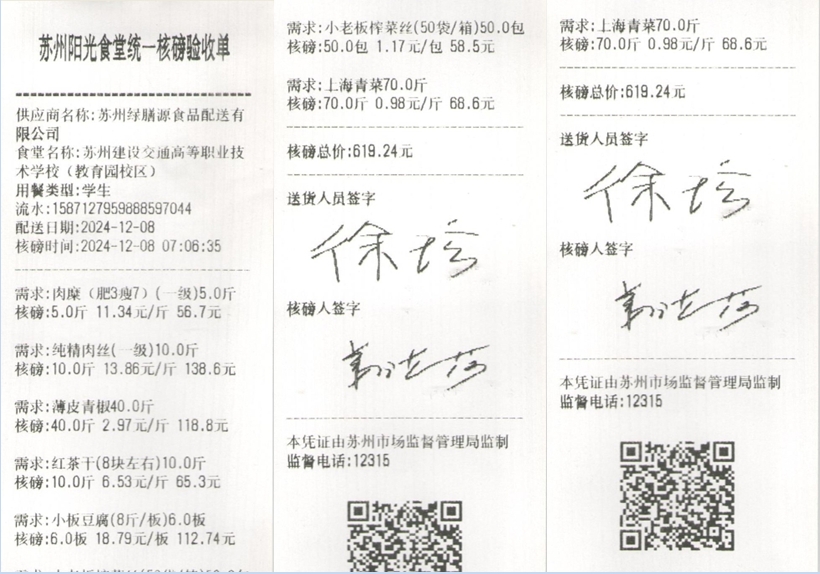 苏州阳光食堂统一核磅验收单
供应商名称:苏州绿膳源食品配送有
限公司
食堂名称:苏州建设交通高等职业技
术学校（教育园校区）
用餐类型:学生
流水:1587127959888597044
配送日期:2024-12-08
核磅时间:2024-12-08 07:06:35
需求:肉糜（肥3瘦7）(一级)5.0斤
核磅:5.0斤 11.34元/斤 56.7元
需求:纯精肉丝(一级)10.0斤
核磅:10.0斤 13.86元/斤 138.6元
需求:薄皮青椒40.0斤
核磅:40.0斤 2.97元/斤 118.8元
需求:红茶干(8块左右)10.0斤
核磅:10.0斤 6.53元/斤 65.3元
需求:小板豆腐(8斤/板)6.0板
核磅:6.0板 18.79元/板 112.74元
需求:小老板榨菜丝(50袋/箱)50.0包
核磅:50.0包 1.17元/包 58.5元
需求:上海青菜70.0斤
核磅:70.0斤 0.98元/斤 68.6元
核磅总价:619.24元
送货人员签字
核磅人签字
本凭证由苏州市场监督管理局监制
监督电话:12315
需求:上海青菜70.0斤
核磅:70.0斤 0.98元/斤 68.6元
核磅总价:619.24元
送货人员签字
核磅人签字
本凭证由苏州市场监督管理局监制
监督电话:12315